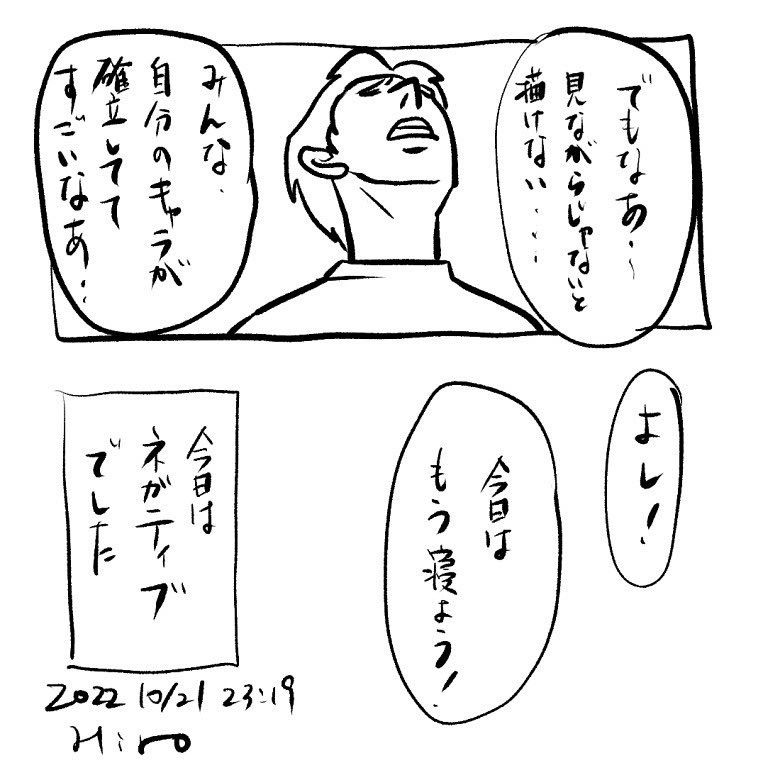 でもなあ〜
見ながらじゃないと
描けない・・・・
みんな
自分のキャラが
確立してて
すごいなあ・・
よし!
今日は
もう寝よう!
今日は
ネガティブ
でした
2022 10/21 23:19
Hiro